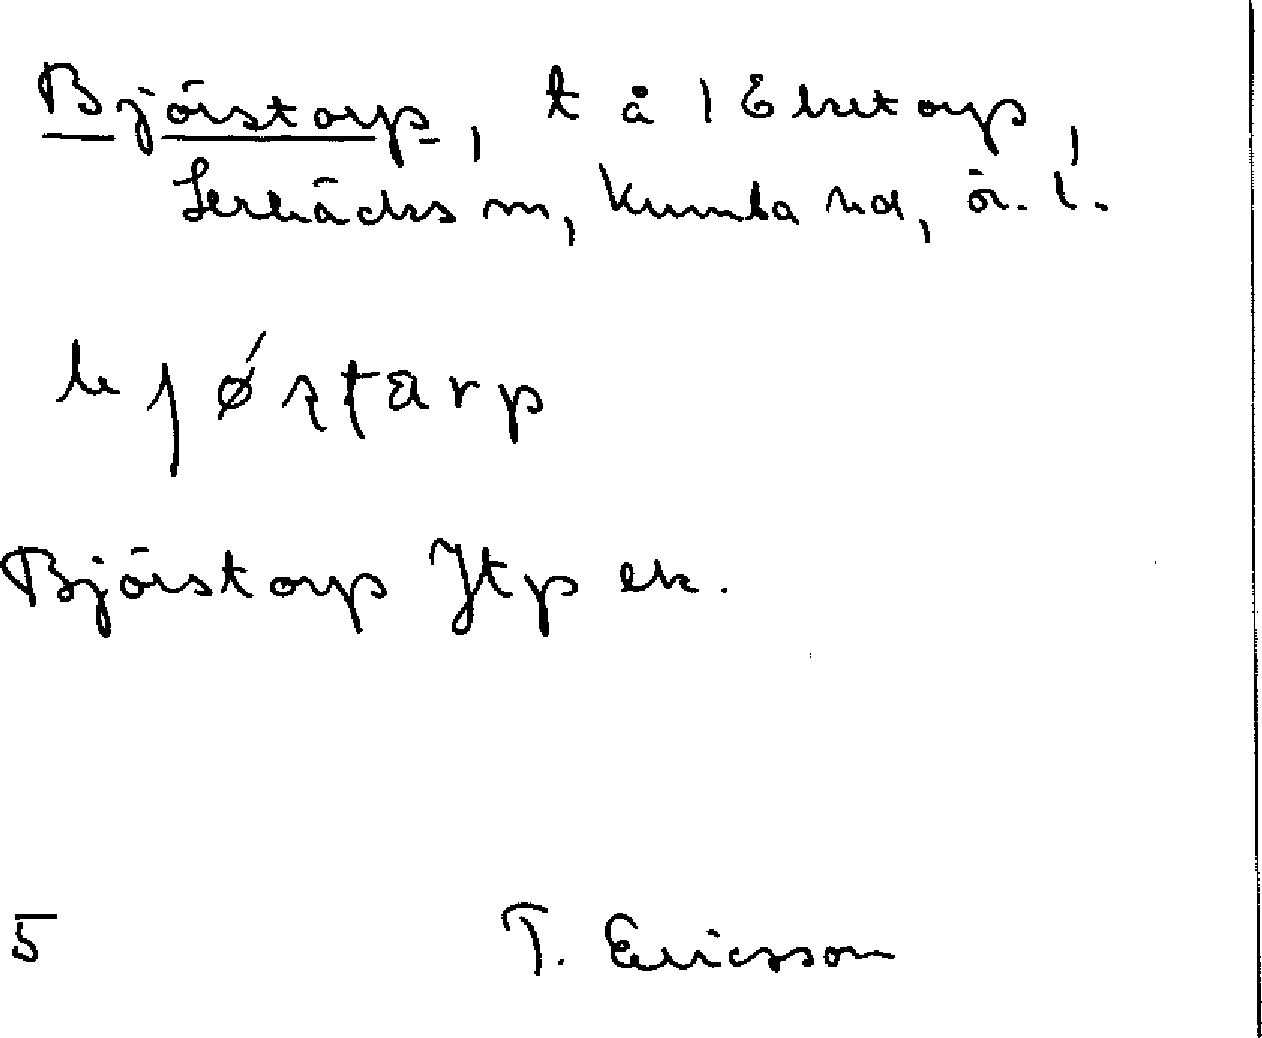 Björstorp, t å 1 Ekretorp,
Lerbäcks sn, Kumla hd, Ör. l.
bjørstarp
Björstorp Jtp ek.
5 T. Ericsson